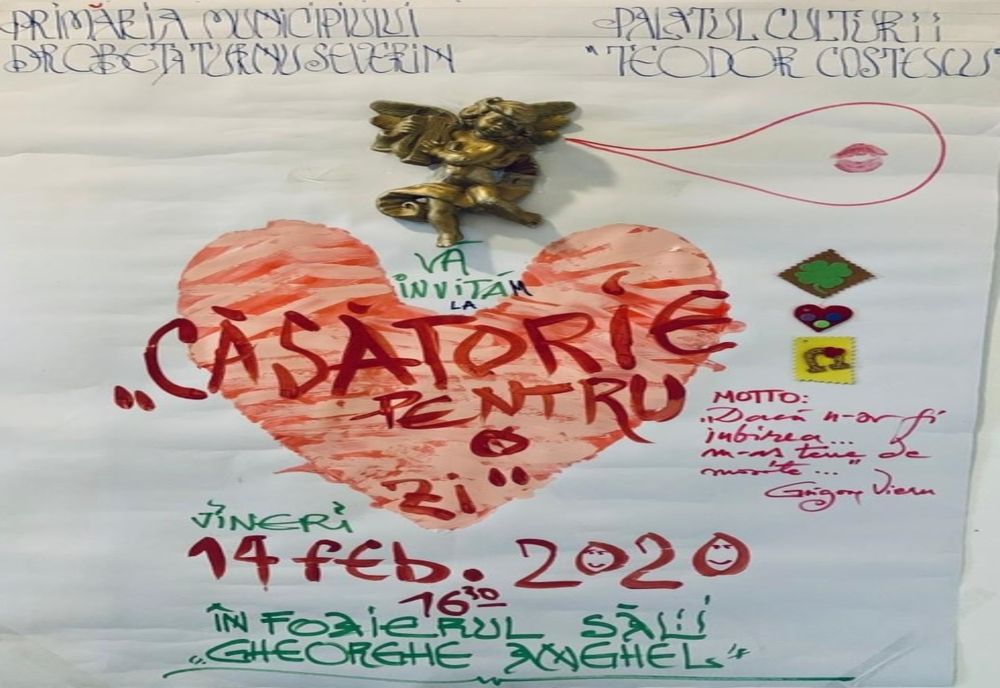 PRIMĂRIA MUNICIPIULUI
DROBETA TURNU SEVERIN
PALATUL CULTURII
"TEODOR COSTESCU"
VĂ
INVITĂM
LA
„CĂSĂTORIE
PENTRU
O
ZI"
MOTTO:
„Dacă n-ar fi
iubirea...
m-aș teme de
moarte..."
Grigore Vieru
VINERI
14 feb. 2020
16³⁰
ÎN FOAIERUL SĂLII
„GHEORGHE ANGHEL"